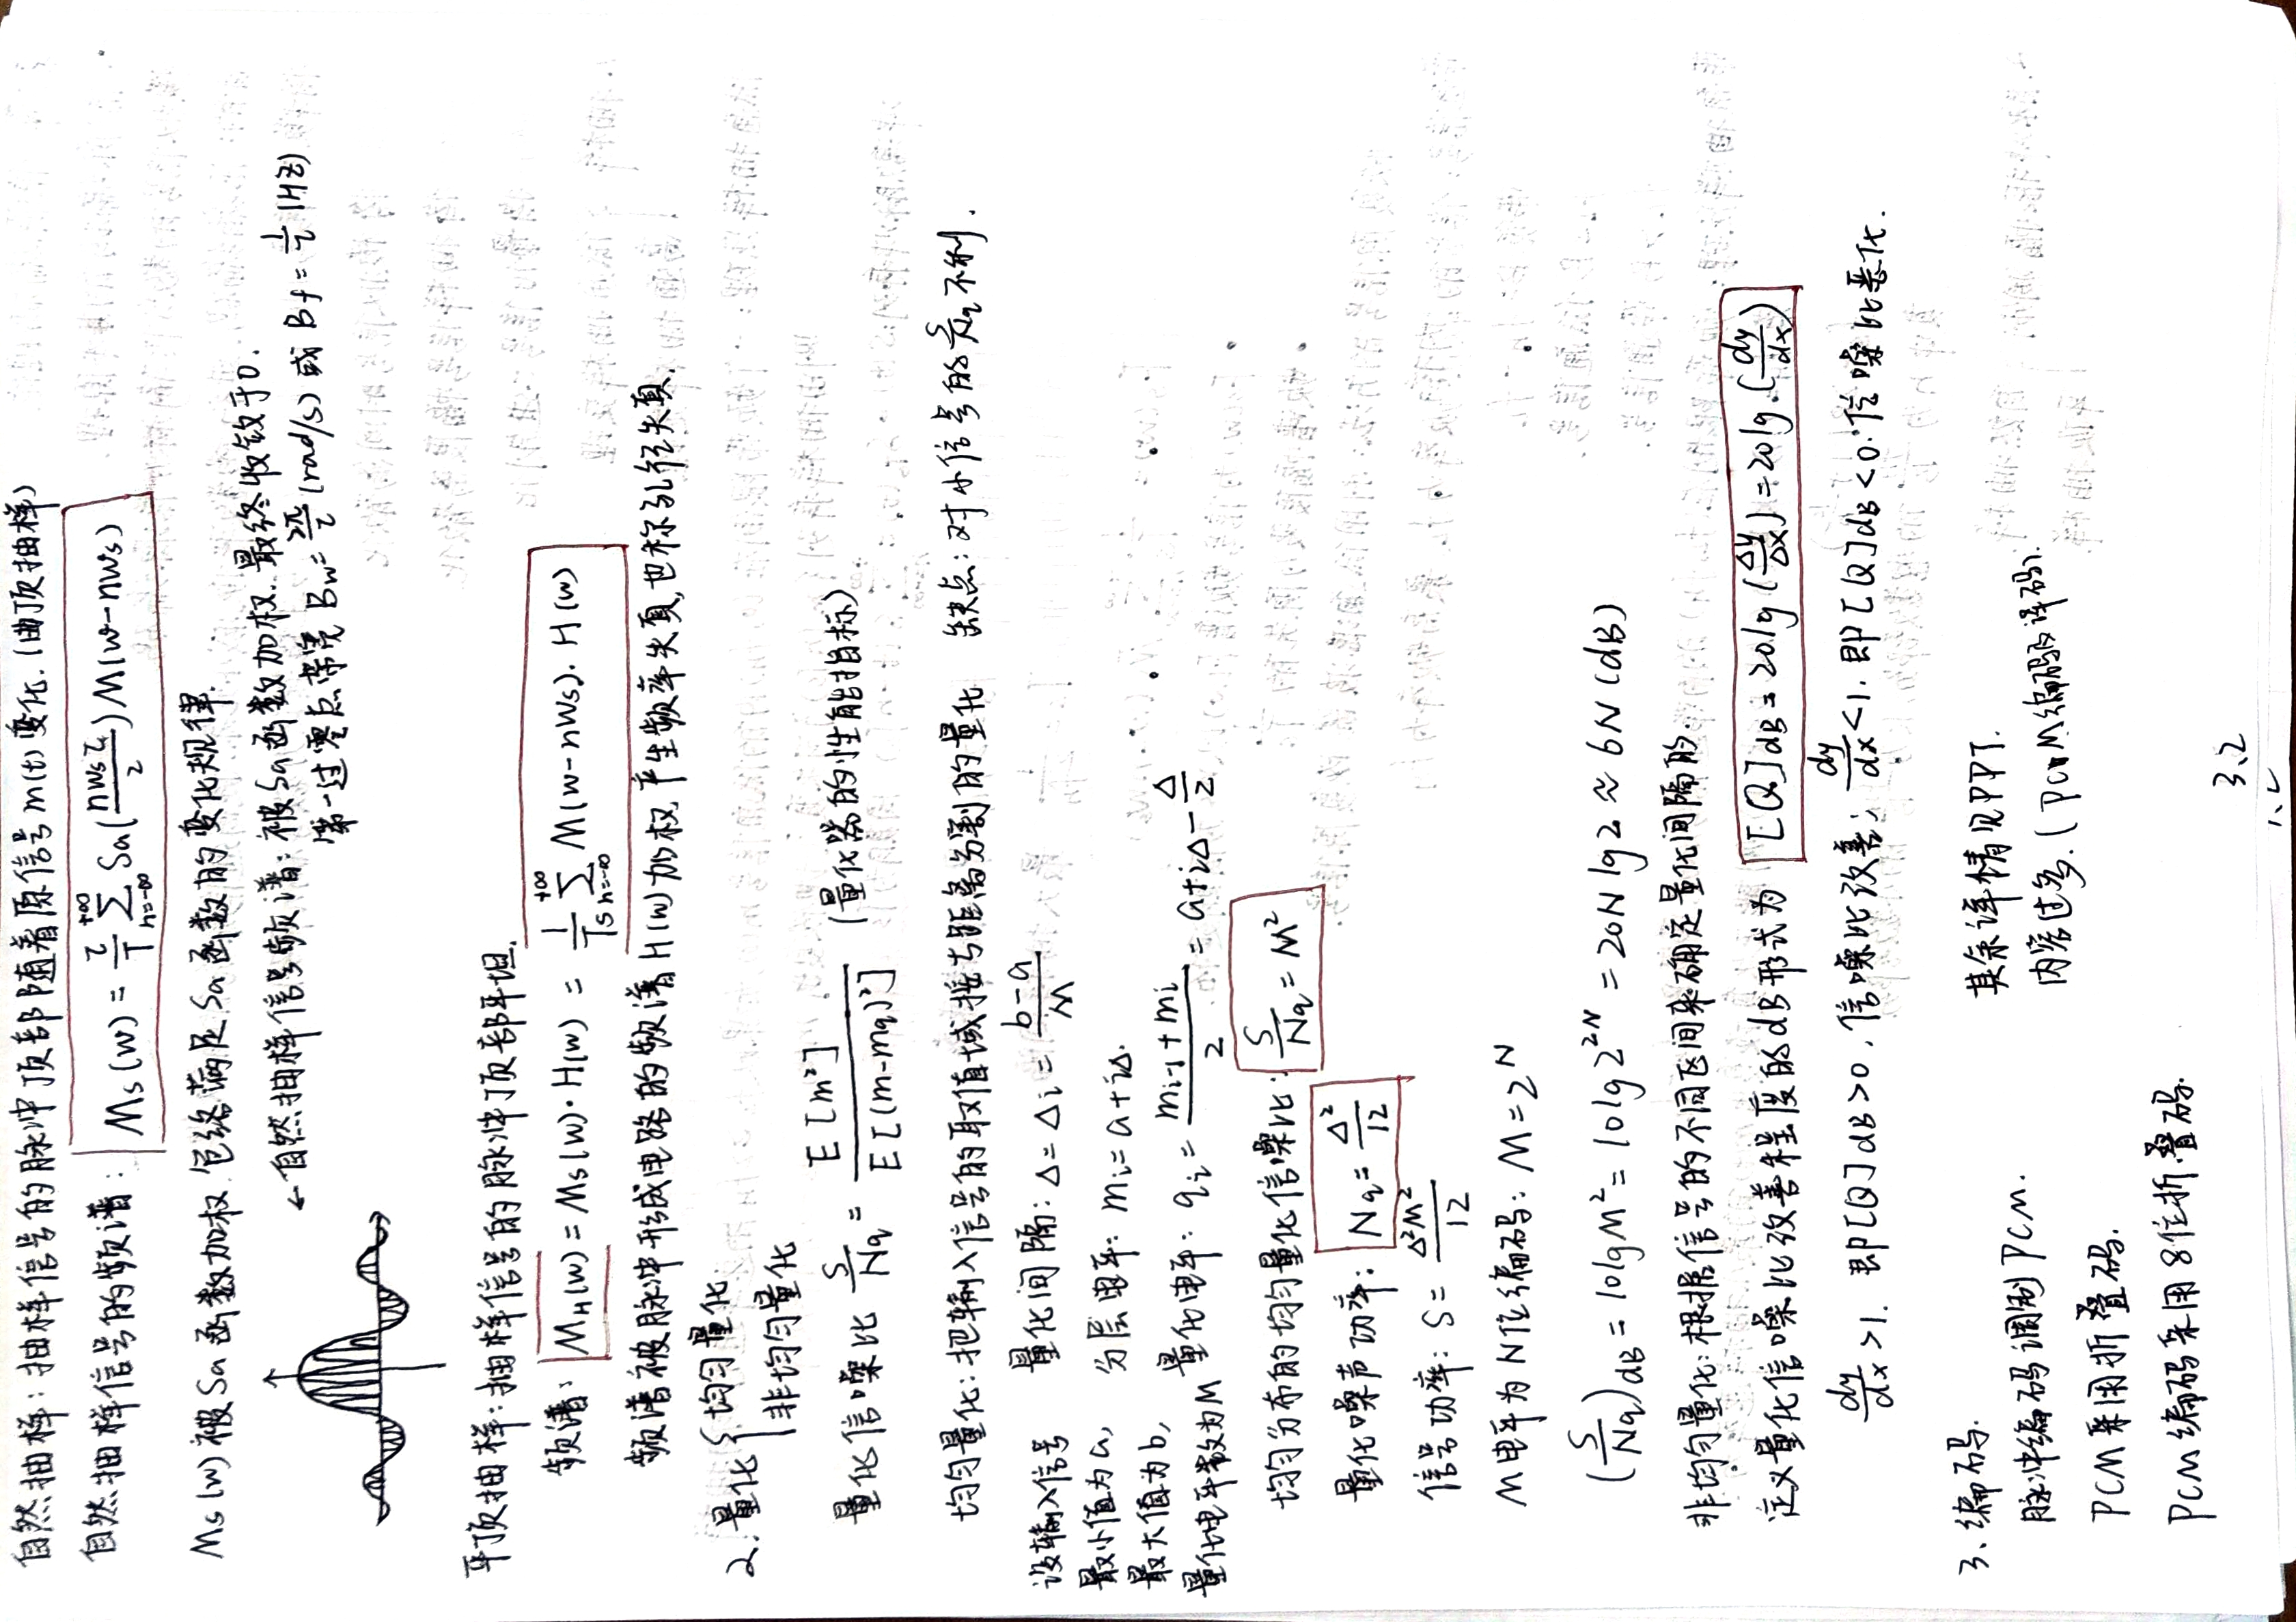 自然抽样：抽样信号的脉冲顶部随着原信号m(t)变化.(曲顶抽样)
自然抽样信号的频谱： Ms(w) = τ/T Σ(n=-∞→+∞) Sa(nwsτ/2) M(w-nws)
Ms(w)被Sa函数加权.包络满足Sa函数的变化规律.
←自然抽样信号频谱：被Sa函数加权.最终收敛于0.
第一过零点带宽 Bw=2π/τ (rad/s) 或 Bf=1/τ (HZ)
平顶抽样：抽样信号的脉冲顶部平坦.
频谱： MH(w) = Ms(w)·H(w) = 1/Ts Σ(n=-∞→+∞) M(w-nws)·H(w)
频谱被脉冲形成电路的频谱H(w)加权,产生频率失真,也称孔径失真.
2.量化{均匀量化
非均匀量化
量化信噪比 S/Nq = E[m²]/E[(m-mq)²] (量化器的性能指标)
均匀量化：把输入信号的取值域按等距离分割的量化 缺点：对小信号的S/Nq不利.
设输入信号
最小值为a,
最大值为b,
量化电平数为M
量化间隔：Δ=Δi=(b-a)/M
分层电平：mi=a+iΔ.
量化电平：qi=(mi-1+mi)/2=a+iΔ-Δ/2
均匀分布的均匀量化信噪比：S/Nq=M²
量化噪声功率：Nq=Δ²/12
信号功率：S=Δ²M²/12
M电平为N位编码：M=2^N
(S/Nq)dB = 10lgM² = 10lg2^2N = 20Nlg2 ≈ 6N(dB)
非均匀量化：根据信号的不同区间来确定量化间隔的.
定义量化信噪比改善程度的dB形式为 [Q]dB=20lg(Δy/Δx)=20lg.(dy/dx)
dy/dx>1. 即[Q]dB>0,信噪比改善; dy/dx<1.即[Q]dB<0.信噪比恶化.
3、编码.
脉冲编码调制PCM.
PCM采用折叠码.
PCM编码采用8位折叠码.
其余详情见PPT.
内容过多.(PCM编码及译码).
3、2